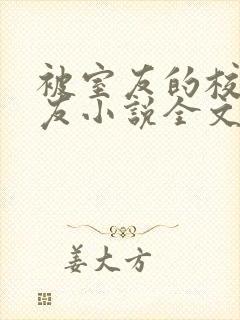 被室友的校
友小説全文
姜大方